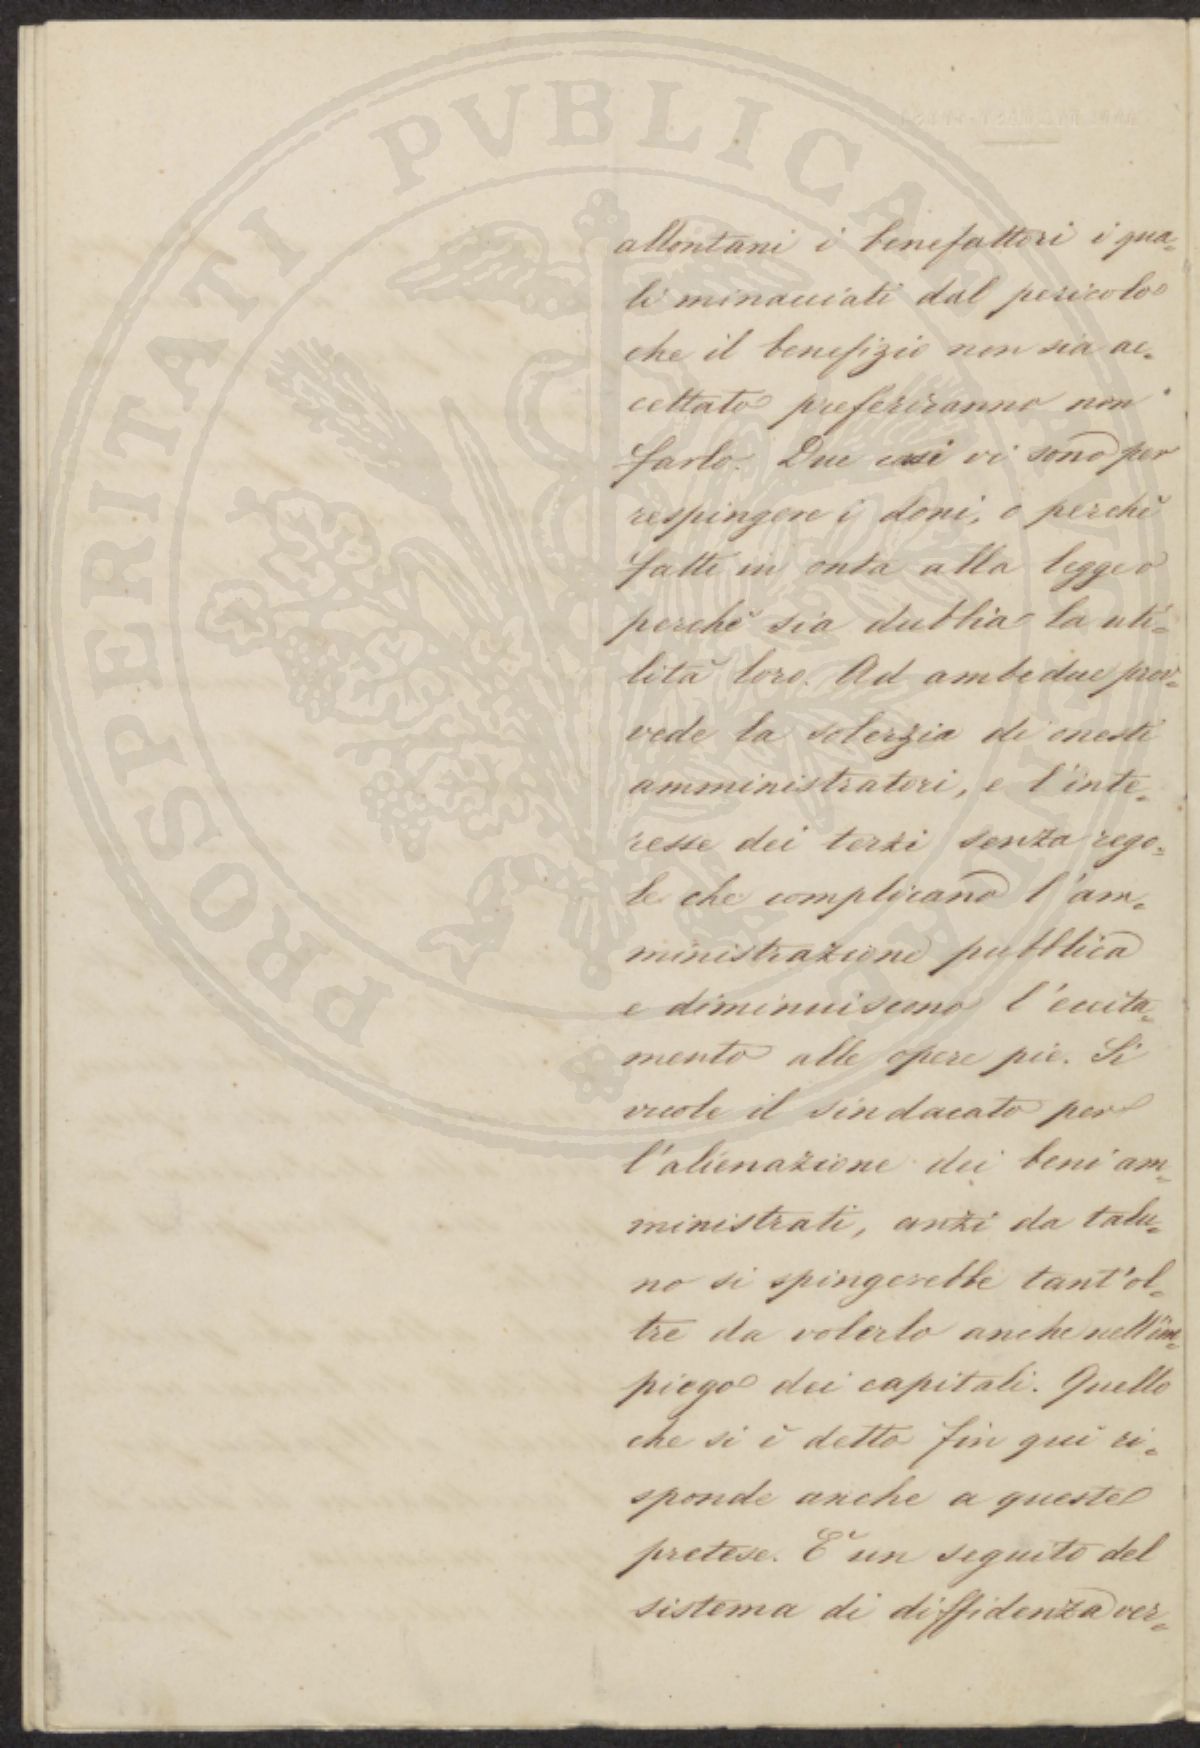 PROSPERITATI PVBLICAE
allontani i benefattori i qua=
li minacciati dal pericolo
che il benefizio non sia ac=
cettato preferiranno non
farlo. Due casi vi sono per
respingere i doni, o perchè
fatti in onta alla legge o
perchè sia dubbia la uti=
lità loro. Ad ambedue prov=
vede la solerzia di onesti
amministratori, e l'inte=
resse dei terzi senza rego=
le che complicano l'am=
ministrazione pubblica
e diminuiscono l'eccita=
mento alle opere pie. Si
vuole il sindacato per
l'alienazione dei beni am=
ministrati, anzi da talu=
no si spingerebbe tant'ol=
tre da volerlo anche nell'im=
piego dei capitali. Quello
che si è detto fin quì ri=
sponde anche a queste
pretese. È un seguito del
sistema di diffidenza ver=